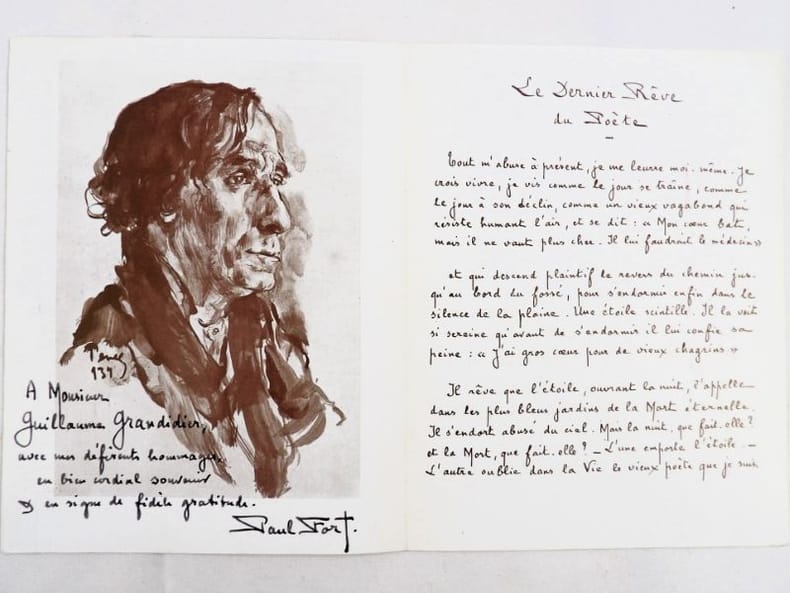 1939
A Monsieur
Guillaume Grandidier,
avec mes déférents hommages,
en bien cordial souvenir
& en signe de fidèle gratitude.
Paul Fort.
Le Dernier Rêve
du Poète
Tout m'abuse à présent, je me leurre moi-même. Je
crois vivre, je vis comme le jour se traîne, comme
le jour à son déclin, comme un vieux vagabond qui
résiste humant l'air, et se dit : « Mon cœur bat,
mais il ne vaut plus cher. Il lui faudrait le médecin »
et qui descend plaintif le revers du chemin jus-
qu'au bord du fossé, pour s'endormir enfin dans le
silence de la plaine. Une étoile scintille. Il la voit
si sereine qu'avant de s'endormir il lui confie sa
peine : « J'ai gros cœur pour de vieux chagrins »
Il rêve que l'étoile, ouvrant la nuit, l'appelle
dans les plus bleus jardins de la Mort éternelle.
Il s'endort abusé du ciel. Mais la nuit, que fait-elle ?
et la Mort, que fait-elle ? — L'une emporte l'étoile —
L'autre oublie dans la Vie le vieux poète que je suis